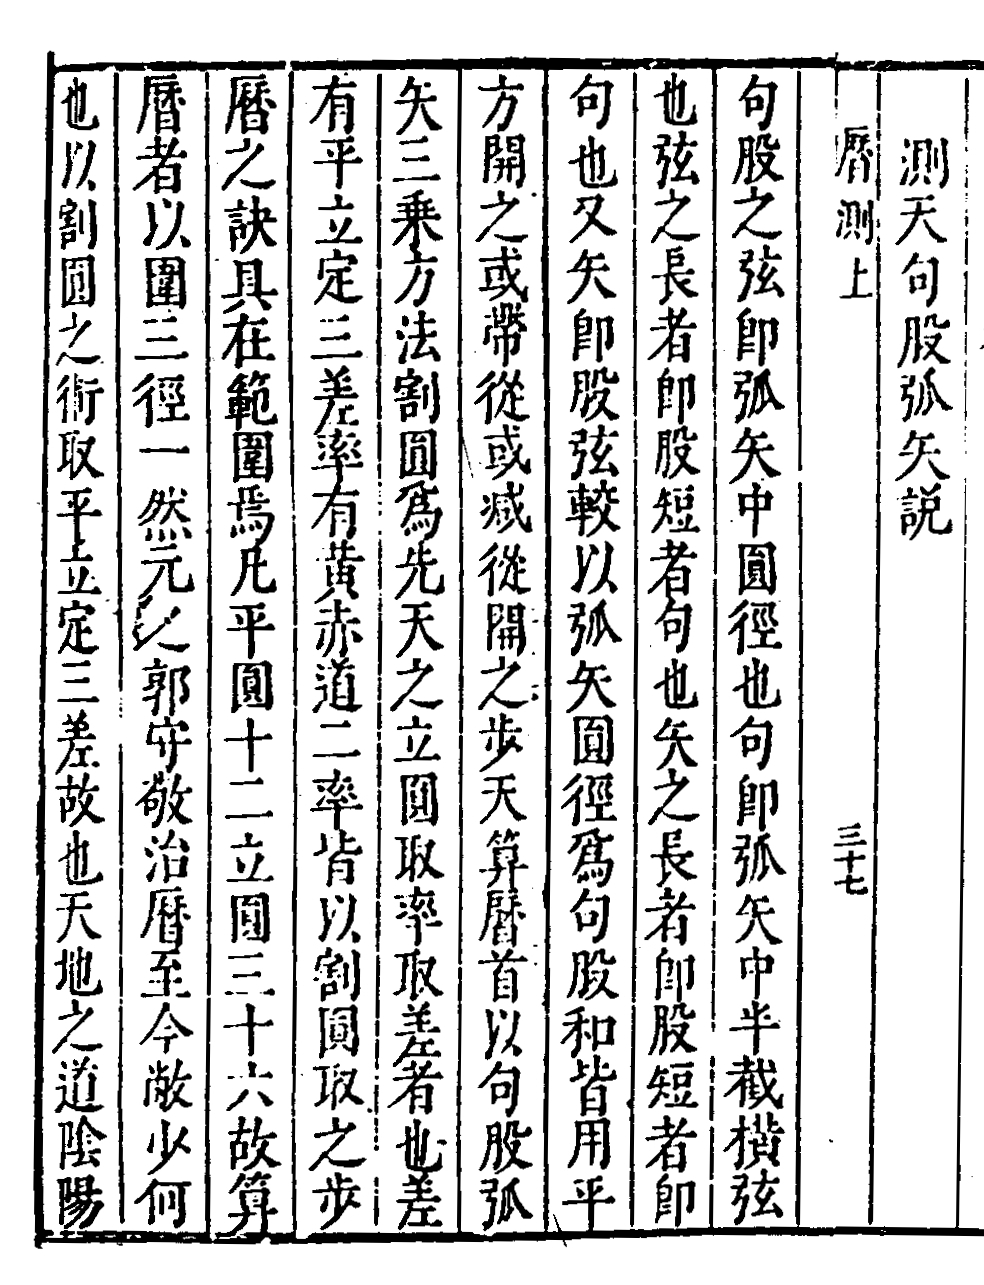 測天句股弧矢説
暦測上 三十七
句股之弦卽弧矢中圓徑也句卽弧矢中半截横弦
也弦之長者卽股短者句也矢之長者卽股短者卽
句也又矢卽股弦較以弧矢圓徑爲句股和皆用平
方開之或帶從或减從開之步天算暦首以句股弧
矢三乗方法割圓爲先天之立圓取率取差者也差
有平立定三差率有黄赤道二率皆以割圓取之步
暦之訣具在範圍焉凡平圓十二立圓三十六故算
暦者以圍三徑一然元郭守敬治暦至今敝少何
也以割圓之術取平立定三差故也天地之道陰陽